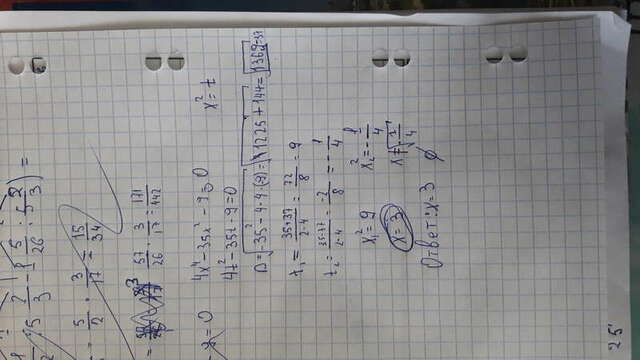 5 2/3 - 1 5/26 : 5 2/3) =
= 5/2 · 3/17 = 15/34
= 57/26 · 3/17 = 171/442
= 0
4x⁴ - 35x² - 9 = 0
x² = t
4t² - 35t - 9 = 0
D = √-35² - 4 · 4 · (9) = √1225 + 144 = √1369 = 37
t₁ = 35+37/2·4 = 72/8 = 9
t₂ = 35-37/2·4 = -2/8 = -1/4
x₁² = 9
x₂² = -1/4
x = 3
x ≠ √-1/4
Ответ: x = 3
∅
25